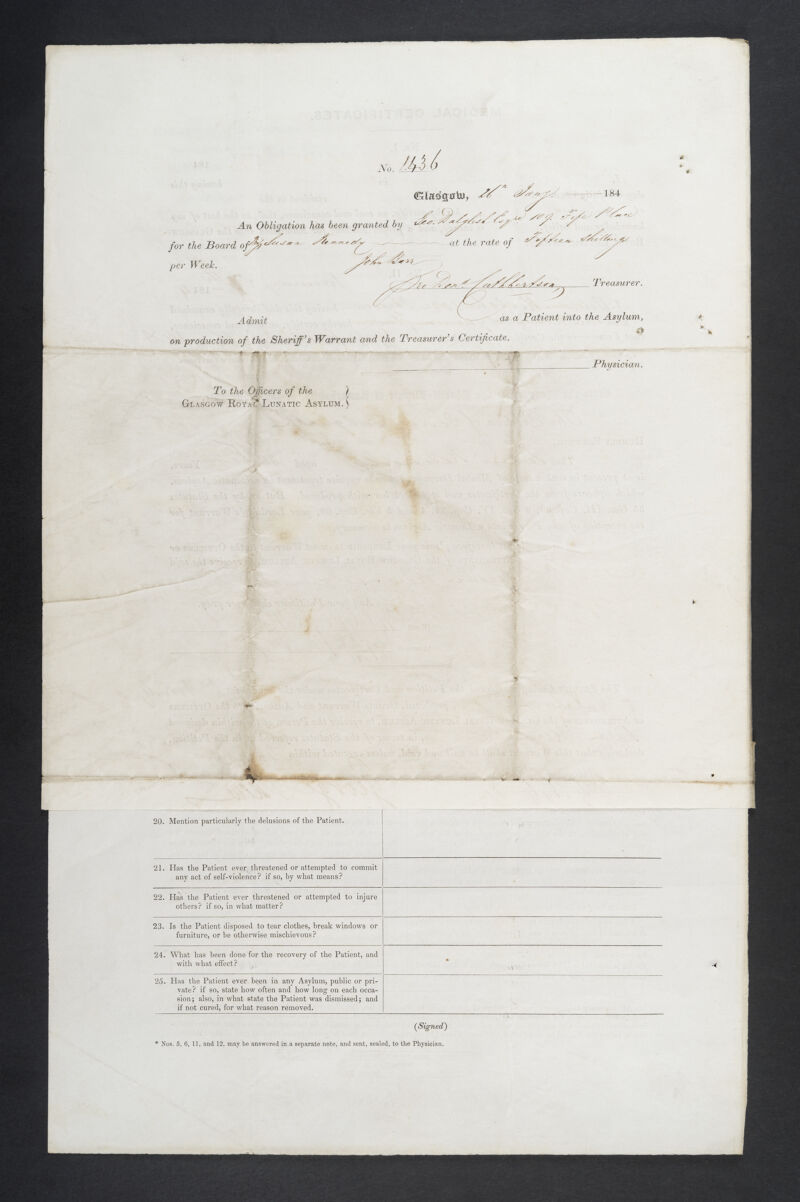 No. 1436
Glasgow, 26th Jany 184
An Obligation has been granted by Geo. Dalglish Esqre Fife Place
for the Board of Susan Kennedy at the rate of Fifteen Shillings
per Week. John Barr
Cuthbertson Treasurer.
Admit as a Patient into the Asylum,
on production of the Sheriff's Warrant and the Treasurer's Certificate.
Physician.
To the Officers of the
Glasgow Royal Lunatic Asylum.
20. Mention particularly the delusions of the Patient.
21. Has the Patient ever threatened or attempted to commit
any act of self-violence? if so, by what means?
22. Has the Patient ever threatened or attempted to injure
others? if so, in what matter?
23. Is the Patient disposed to tear clothes, break windows or
furniture, or be otherwise mischievous?
24. What has been done for the recovery of the Patient, and
with what effect?
25. Has the Patient ever been in any Asylum, public or pri-
vate? if so, state how often and how long on each occa-
sion; also, in what state the Patient was dismissed; and
if not cured, for what reason removed.
(Signed)
* Nos. 5, 6, 11, and 12, may be answered in a separate note, and sent, sealed, to the Physician.